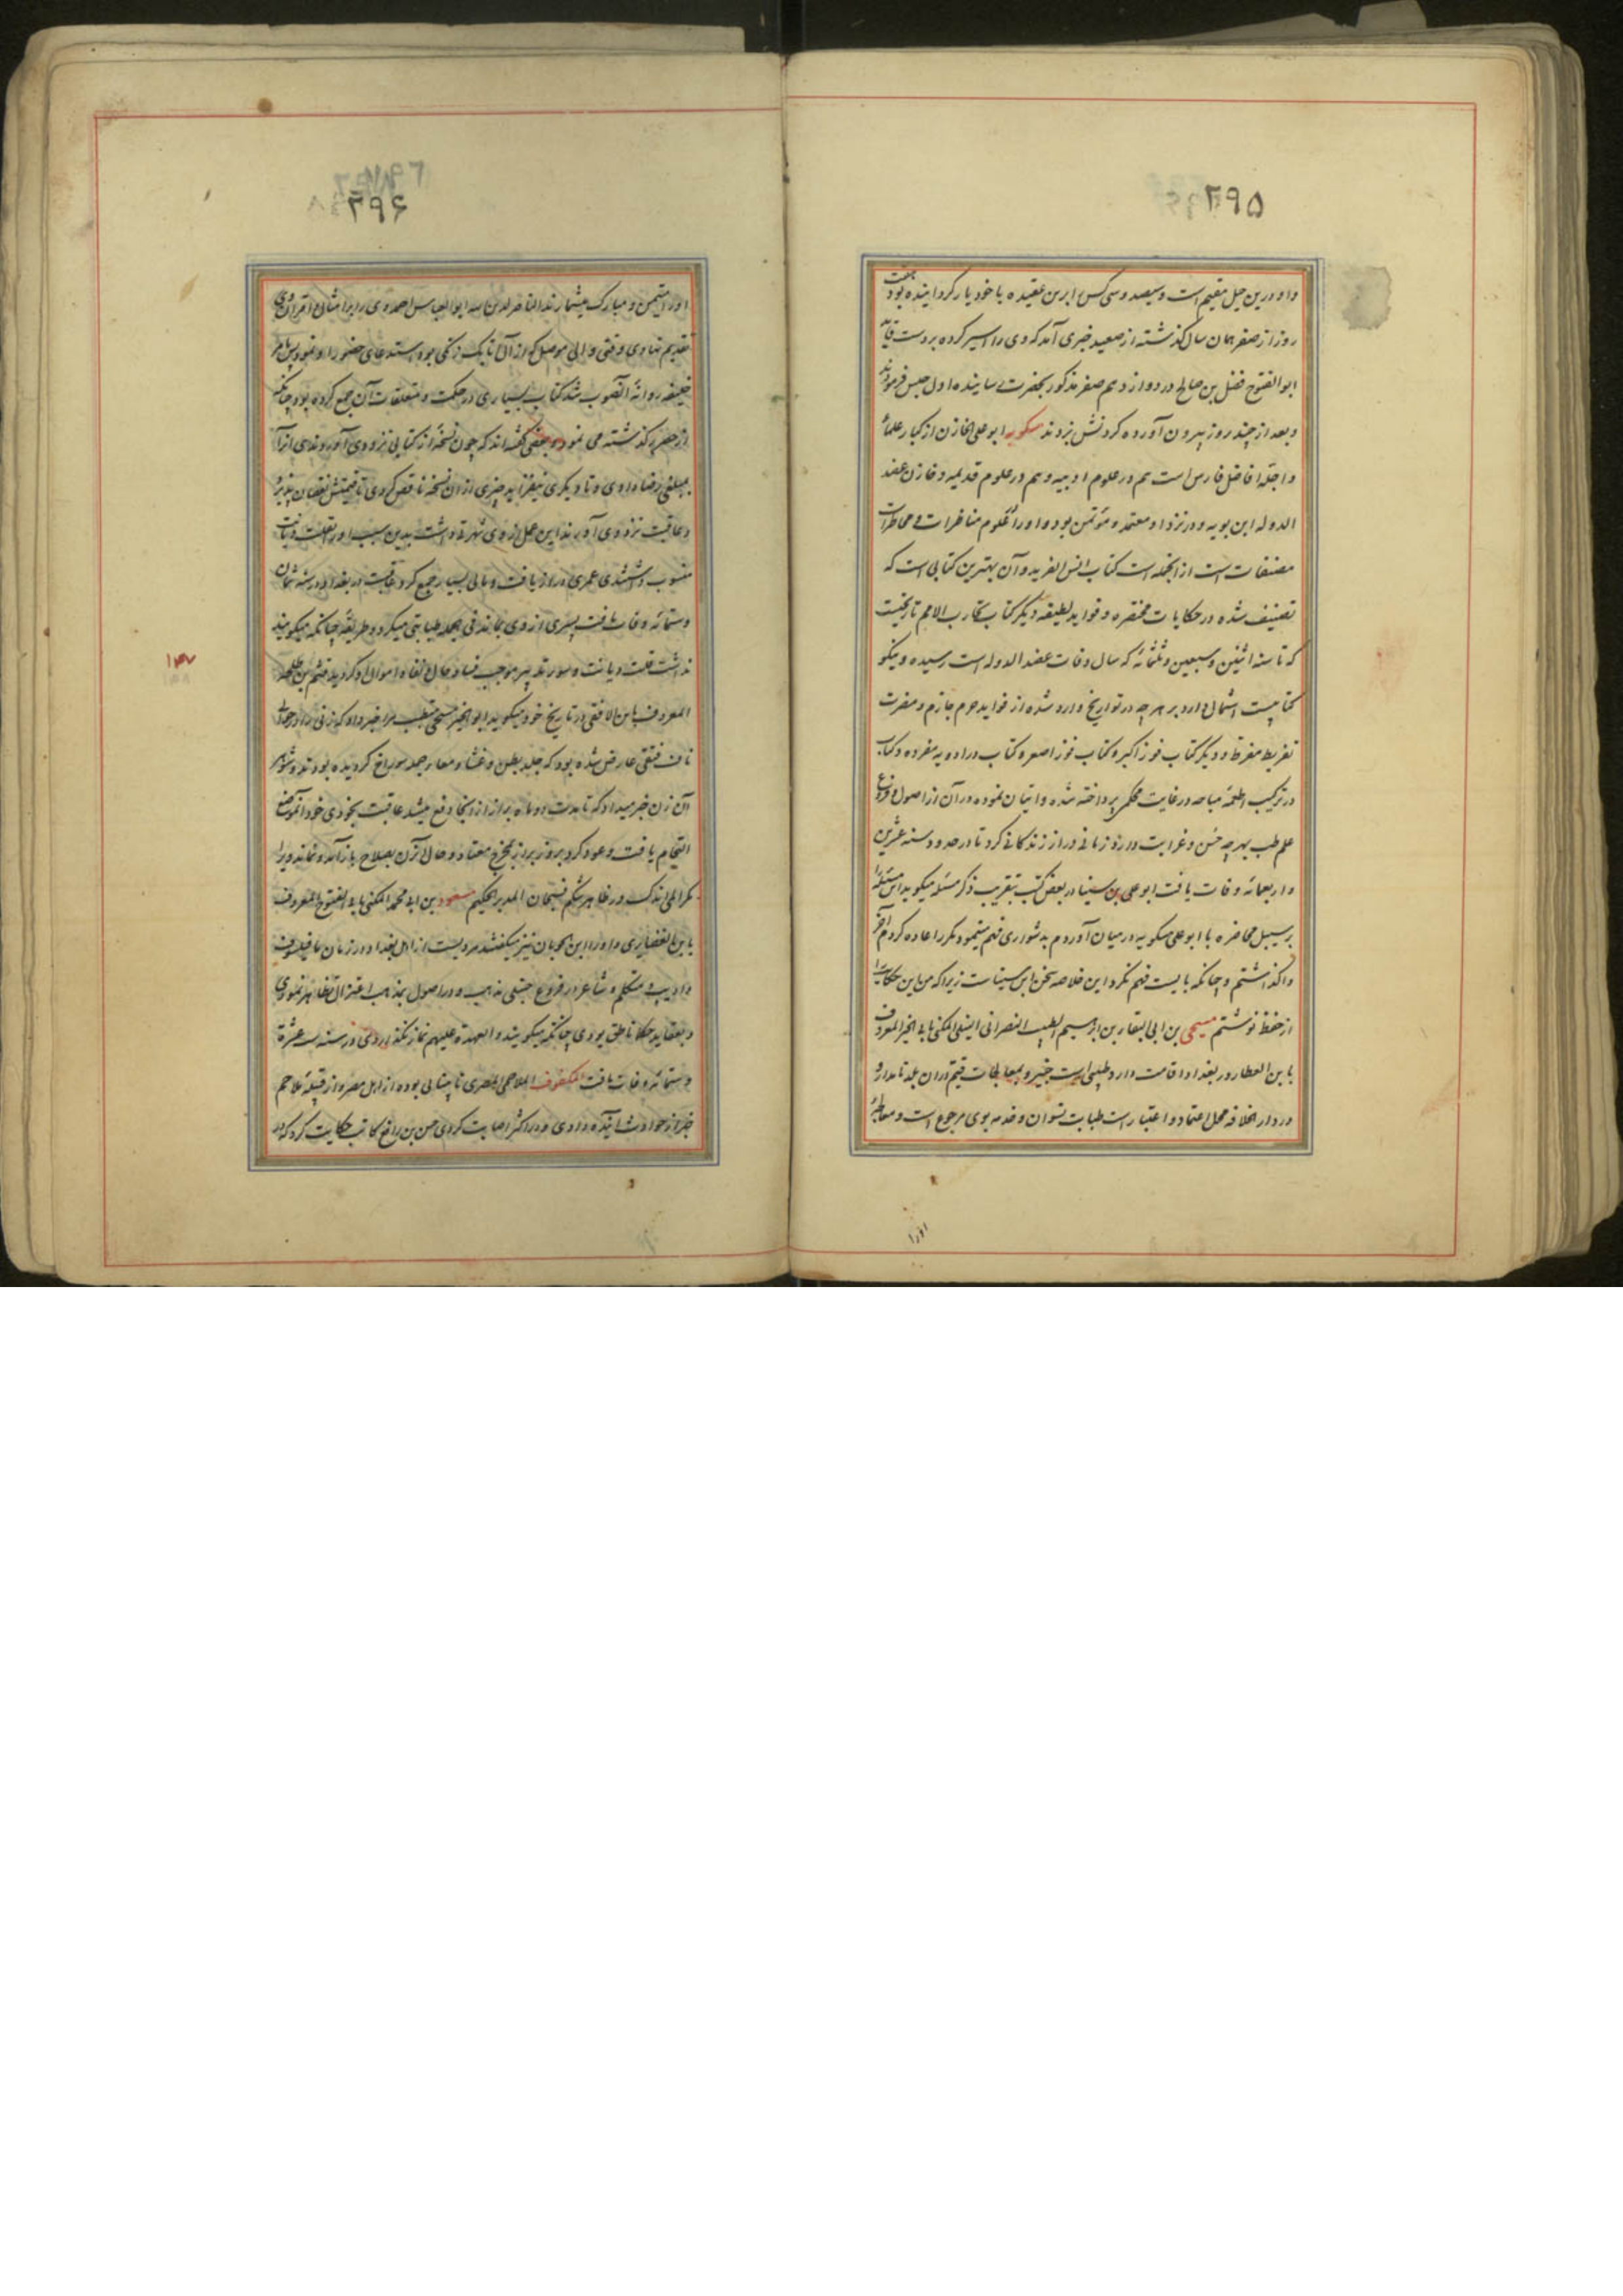 ۲۹۵
و او درین جبل مقیم است و سیصد و سی کس ابرین عقیده با خود یار کردانیده بود
روز از صفر همان سال کذشته از صعید خبری آمد که وی را اسیر کرده بر دست قاید
ابو الفتوح فضل بن صالح در دوازدهم صفر مذکور بحضرت رسانیده اول حبس فرمودند
و بعد از چند روز بیرون آورده کردنش بزدند مسکویه ابو علی الخازن از کبار علماء
و اجله افاضل فارس است هم در علوم ادبیه و هم در علوم قدیمه و خازن عضد
الدوله ابن بویه و در نزد او معتمد و مؤتمن بود و او را در علوم مناظرات و محاضرات
مصنفات است از انجمله است کتاب انس الفرید و آن بهترین کتابی است که
تصنیف شده در حکایات مختصره و فواید لطیفه و دیگر کتاب تجارب الامم تاریخیست
که تا سنه اثنین و سبعین و ثلثمائه که سال وفات عضد الدوله است رسیده و نیکو
کتابیست اشتمال دارد بر هر چه در تواریخ وارد شده از فواید حزم جازم و مضرت
تفریط مفرط و دیگر کتاب فوز اکبر و کتاب فوز اصغر و کتاب در ادویه مفرده و کتاب
در ترکیب اطعمه مباحه در غایت محکمی پرداخته شده و اتیان نموده در آن از اصول و فروع
علم طب بهر چه حسن و غرابت دارد و زمانی دراز زندکانی کرد تا در حدود سنه عشرین
و اربعمائه وفات یافت ابو علی بن سینا در بعض کتب بتقریب ذکر مسئله میکوید این مسئله را
بر سبیل محاضره با ابو علی مسکویه در میان آوردم بدشواری فهم مینمود مکرر اعاده کردم آخر
واکذاشتم و چنانکه بایست فهم نکرد این خلاصه سخن ابن سیناست زیرا که من این حکایت را
از حفظ نوشتم مسیحی بن ابی البقا بن ابرهیم الطبیب النصرانی النیلی المکنی بابی الخیر المعروف
بابن العطار در بغداد اقامت دارد طبیبی است خبیر و بمعالجات قیم در آن بلد نامدار و
در دار الخلافه محل اعتماد و اعتبار است طبابت نسوان و خدمه بوی مرجوع است و معالجهٔ
اورا
۲۹۶
او را متیمن و مبارک میشمارند الناصر لدین الله ابو العباس احمد وی را بر امثال و اقران وی
تقدیم نهادی وقتی والی موصل که از آل اتابک زنکی بود استدعای حضور او نمود پس بامر
خلیفه روانهٔ آنصوب شد کتاب بسیاری در حکمت و متعلقات آن جمع کرده بود چنانکه
از حصر کذشته می نمود و بعضی کفته اند که چون نسخهٔ از کتابی نزد وی آوردندی از آن
بمبلغی رضا دادی و تا دیکری نیفزاید چیزی از آن نسخه ناقص کردی تا قیمتش نقصان پذیرد
و عاقبت نزد وی آورند این عمل از وی شهرت داشت بدین سبب او را بقلت دیانت
منسوب داشتندی عمری دراز یافت و مالی بسیار جمع کرد عاقبت در بغداد در سنه ثمان
و ستمائه وفات یافت پسری از وی بماند فی الجمله طبابتی میکرد و طریقهٔ چنانکه میکویند
نداشت قلت دیانت و سوء تدبیر موجب فساد حال و افناء اموال او کردید قثم بن طلحه
المعروف بابن الاتقی در تاریخ خود میکوید ابو الخیر مسیحی متطبب مرا خبر داد که زنی را در حوالی
ناف فتقی عارض شده بود که جلد بطن و غشاء و معاء جمله سوراخ کردیده بودند و شوهر
آن زن خبر میداد که تا مدت دو ماه براز از آنجا دفع میشد عاقبت بخودی خود آنموضع
التحام یافت و عود کرد بروز براز بمخرج معتاد و حال آنزن بصلاح باز آمد و نماند ویرا
مکر المی اندک در ظاهر شکم فسبحان المدبر الحکیم مسعود بن ابی محمد المکنی بابی الفتوح المعروف
بابن الغضایری و او را ابن الجوبان نیز میکفتند مردیست از اهل بغداد در زمان ما فیلسوف
و ادیب و متکلم و شاعر در فروع حنبلی مذهب و در اصول بمذهب اعتزال تظاهر نمودی
و بعقاید حکما ناطق بودی چنانکه میکویند و العهدة علیهم نماز نکذاردی در سنه ست عشرة
و ستمائه وفات یافت المکفوف الملاحمی المصری نابینائی بوده از اهل مصر و از قبیله ملاحم
خبر از حوادث آینده دادی و در اکثر اصابت کردی حسن بن رافع کاتب حکایت کرد که در